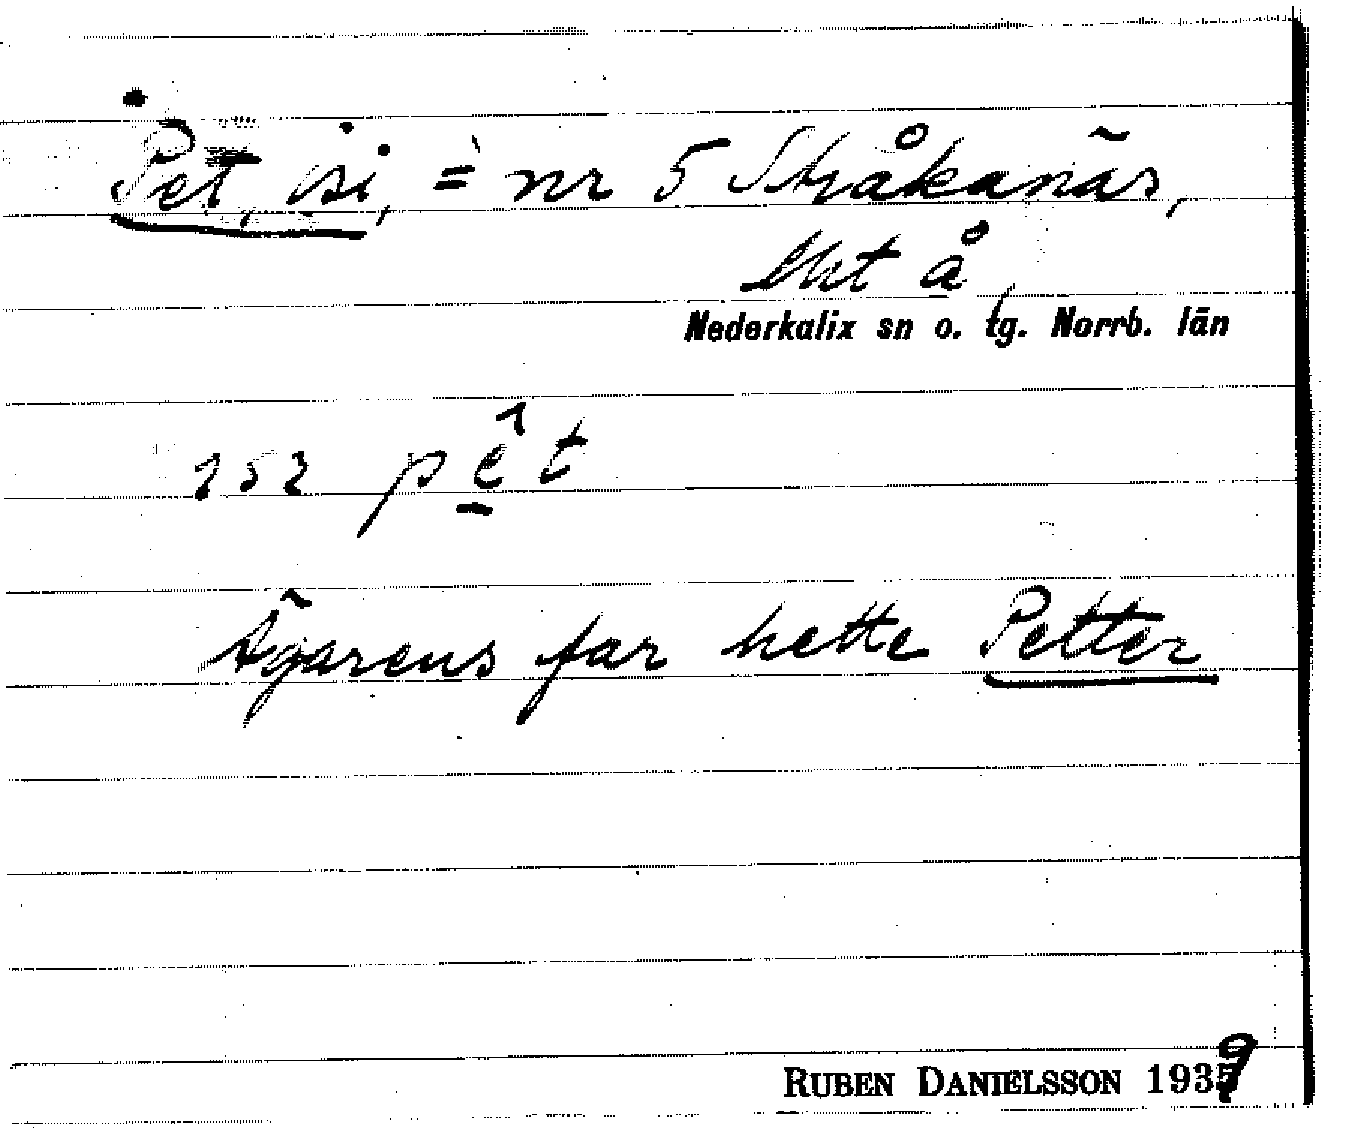 Pet, isi, = nr 5 Stråkanäs,
Ykt å
Nederkalix sn o. tg. Norrb. län
152 pêt
Ägarens far hette Petter
RUBEN DANIELSSON 1939